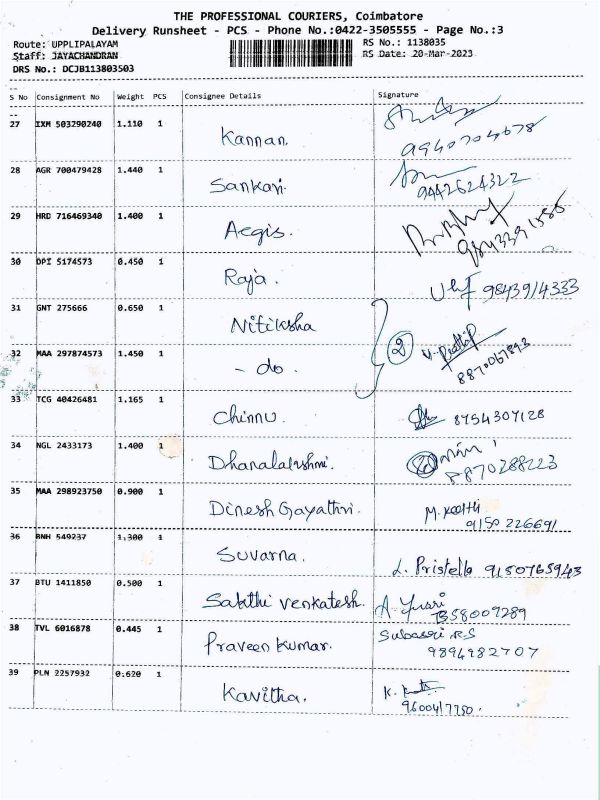 THE PROFESSIONAL COURIERS, Coimbatore
Delivery Runsheet - PCS - Phone No.:0422-3505555 - Page No.:3
Route: UPPLIPALAYAM RS No.: 1138035
Staff: JAYACHANDRAN RS Date: 20-Mar-2023
DRS No.: DCJB113803503
S No Consignment No Weight PCS Consignee Details Signature
27 IXM 503290240 1.110 1 Kannan.
9940704678
28 AGR 700479428 1.440 1 Sankari.
9442624322
29 HRD 716469340 1.400 1 Aegis.
30 DPI 5174573 0.450 1 Raja. 9843914333
31 GNT 275666 0.650 1 Nitiksha
32 MAA 297874573 1.450 1 - do. 2
8870067893
33 TCG 40426481 1.165 1 Chinnu. 8754307128
34 NGL 2433173 1.400 1 Dhanalakshmi.
8870288223
35 MAA 298923750 0.900 1 Dinesh Gayathri. M. Keerthi
9150 226691
36 BNH 549237 1.300 1 Suvarna. L. Pristella 9150765943
37 BTU 1411850 0.500 1 Sakthi Venkatesh.
38 TVL 6016878 0.445 1 Praveen Kumar. Subasri R S
9894982707
39 PLN 2257932 0.620 1 Kavitha.
9600417750.